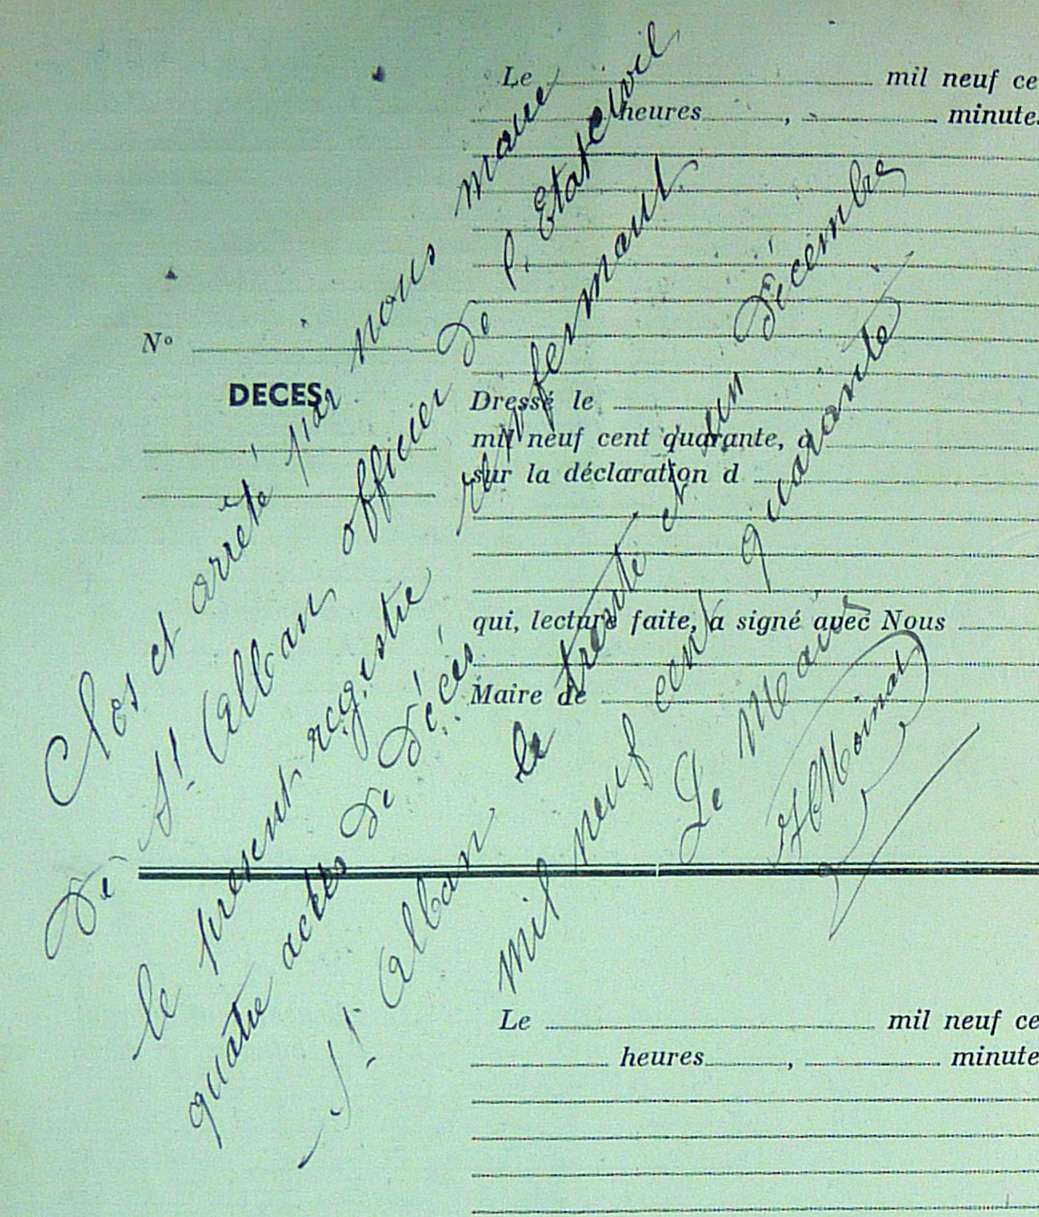 Le mil neuf ce
heures , minute
N°
DECES
Dressé le
mil neuf cent quarante, à
sur la déclaration d
qui, lecture faite, a signé avec Nous
Maire de
Clos et arrêté par nous maire
de St Alban officier de l'Etat civil
le présent registre renfermant
quatre actes de décès.
St Alban le trente et un décembre
mil neuf cent quarante
Le Maire
Moinat
Le mil neuf ce
heures , minute